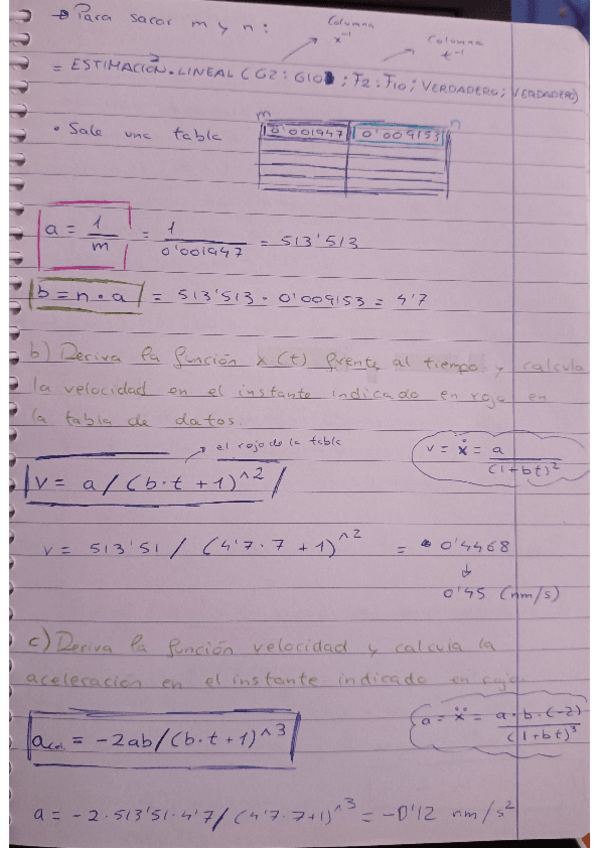 → Para sacar m y n:
Columna x⁻¹
Columna t⁻¹
= ESTIMACIÓN.LINEAL (G2:G10; F2:F10; VERDADERO; VERDADERO)
m n
• Sale una tabla
0'001947 0'009153
a = 1/m = 1/0'001947 = 513'513
b = n · a = 513'513 · 0'009153 = 4'7
b) Deriva la función x(t) frente al tiempo y calcula
la velocidad en el instante indicado en rojo en
la tabla de datos.
el rojo de la tabla
v = a / (b·t + 1)^2
v = ẋ = a/(1+bt)²
v = 513'51 / (4'7·7 + 1)^2 = 0'4468
↓
0'45 (nm/s)
c) Deriva la función velocidad y calcula la
aceleración en el instante indicado en rojo.
= -2ab/(b·t + 1)^3
a = ẍ = a·b·(-2)/(1+bt)³
a = -2·513'51·4'7/(4'7·7+1)^3 = -0'12 nm/s²